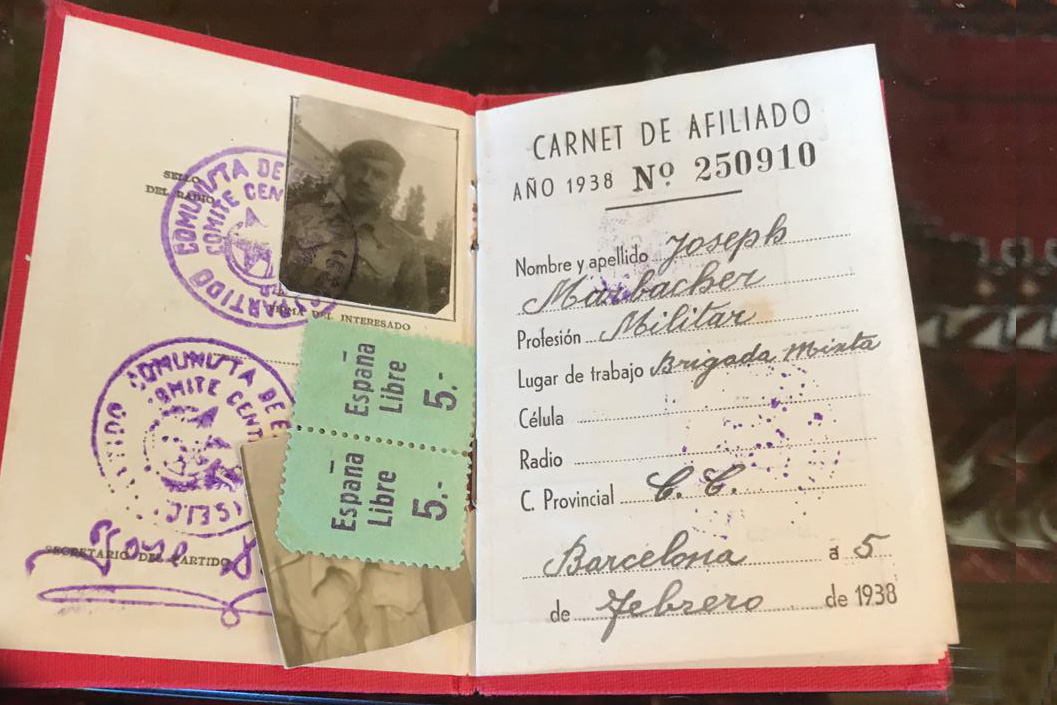 SELLO
DEL RADIO
PARTIDO COMUNISTA DE
COMITE CEN
DEL INTERESADO
COMUNISTA DE E
COMITE CENT
(S.E.I.C.)
SECRETARIO DEL PARTIDO
José
España
Libre
5.-
España
Libre
5.-
CARNET DE AFILIADO
AÑO 1938 Nº 250910
Nombre y apellido Joseph
Marbacher
Profesión Militar
Lugar de trabajo Brigada Mixta
Célula
Radio
C. Provincial C. C.
Barcelona a 5
de Febrero de 1938